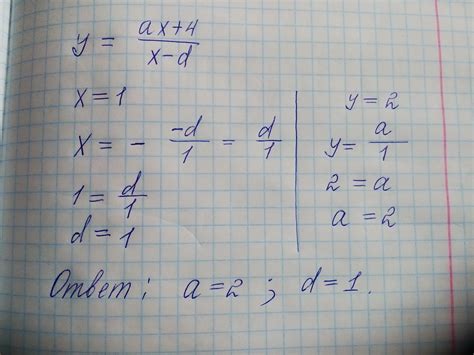 y = \frac{ax+4}{x-d}
x = 1
x = - \frac{-d}{1} = \frac{d}{1}
1 = \frac{d}{1}
d = 1
y = 2
y = \frac{a}{1}
2 = a
a = 2
Ответ: a = 2 ; d = 1.